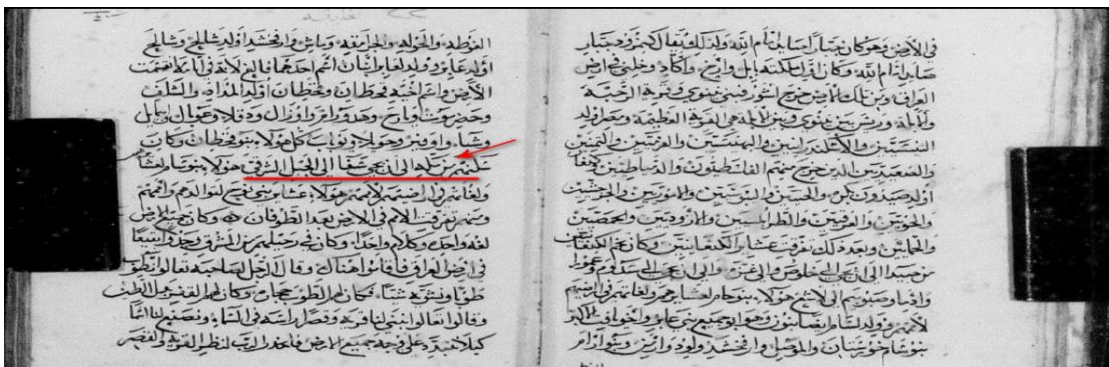 في الارض وهو كان جبارا صايدا قدام الله ولذلك يقال كنمرود جبار
صايد قدام الله وكان اول مملكته بابل وارخ واكاد وخلني في ارض
العراق ومن تلك الارض خرج اشور فبنى نينوى وقرية الرحبة
والابلة ورسن بين نينوى وبين الابلة هي القرية العظيمة ومصر اولد
التنسيين والاسكندرانيين والبهنسيين والفرميين واليمنيين
والصعيديين الذين خرج منهم الفلسطيون والدمياطيين وكنعان
اولد صيدون بكره والحيثيين واليبوسيين والاموريين والجرجشيين
والحويين والعرقيين والطرابلسيين والاروديين والحمصيين
والحمائيين وبعد ذلك تفرقت عشاير الكنعانيين وكان تخم الكنعانيين
من صيدا الى ان تجي الى خلوص والى غزة والى ان تجي الى سدوم وعمورا
وادما وصبويم الى لاشع هولاء بنو حام لعشايرهم ولغاتهم في ارضيهم
لاممهم وولد لسام ايضا بنون وهو ابو جميع بني عابر واخو يافث الاكبر
بنو سام خوزستان والموصل وارفخشد ولود وارمن وبنو ارام
الغوطه والحوله والجرامقه وماش وارفخشد اولد شالخ وشالخ
اولد عابر وولد لعابر ابنان اسم احدهما فالغ لانه في ايامه انقسمت
الارض واسم اخيه قحطان وقحطان اولد المداد والسلف
وحضرموت ويارح وهدورام واوزال ودقلا وعوبال وابيمايل
وشبا واوفير وحويلا ويوباب كل هولاء بنو قحطان وكان
مسكنهم من مكه الى ان تجي سفا الى الجبل الشرقي هولاء بنو سام لعشايرهم
ولغاتهم في ارضيهم لاممهم هولاء عشاير بني نوح لتواليدهم واممهم
ومنهم تفرقت الامم في الارض بعد الطوفان وكان جميع الارض
لغه واحده وكلام واحد وكان في رحيلهم من المشرق وجدوا بقيعا
في ارض العراق فاقاموا هناك وقال الرجل لصاحبه تعالوا نطوب
طوبا ونشويه شيا فكان لهم الطوب حجارة وكان لهم القفر بدل الطين
وقالوا تعالوا نبني لنا قرية وقصرا راسه في السماء ونصنع لنا اسما
كيلا نتبدد على وجه جميع الارض فاحدر الرب لنظر القرية والقصر